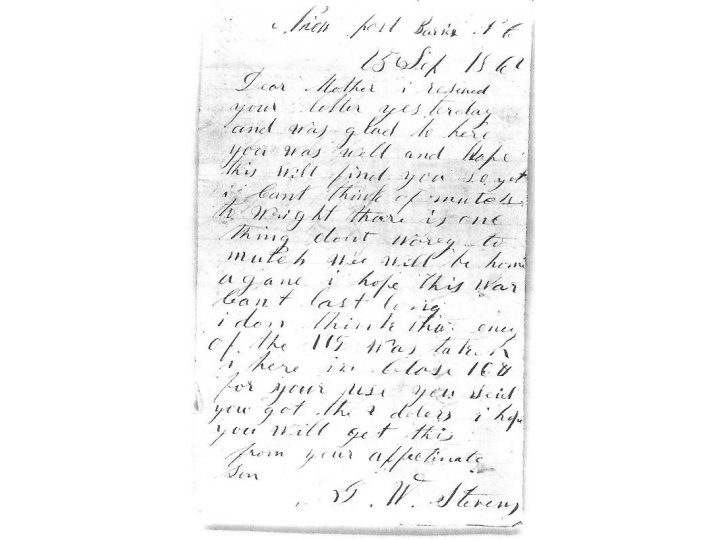 New port Barix N C
25 Sep 186
Dear Mother i resived
your letter yesterday
and was glad to here
you was well and hope
this will find you so yet
i cant think of mutch
to wright thare is one
thing dont worey to
mutch wee will be home
agane i hope this war
cant last long
i don think tha eney
of the 115 was taken
i here in close
for your use you said
you got the 2 dolers i hope
you will get this
from your affectinate
son
G. W. Stevens